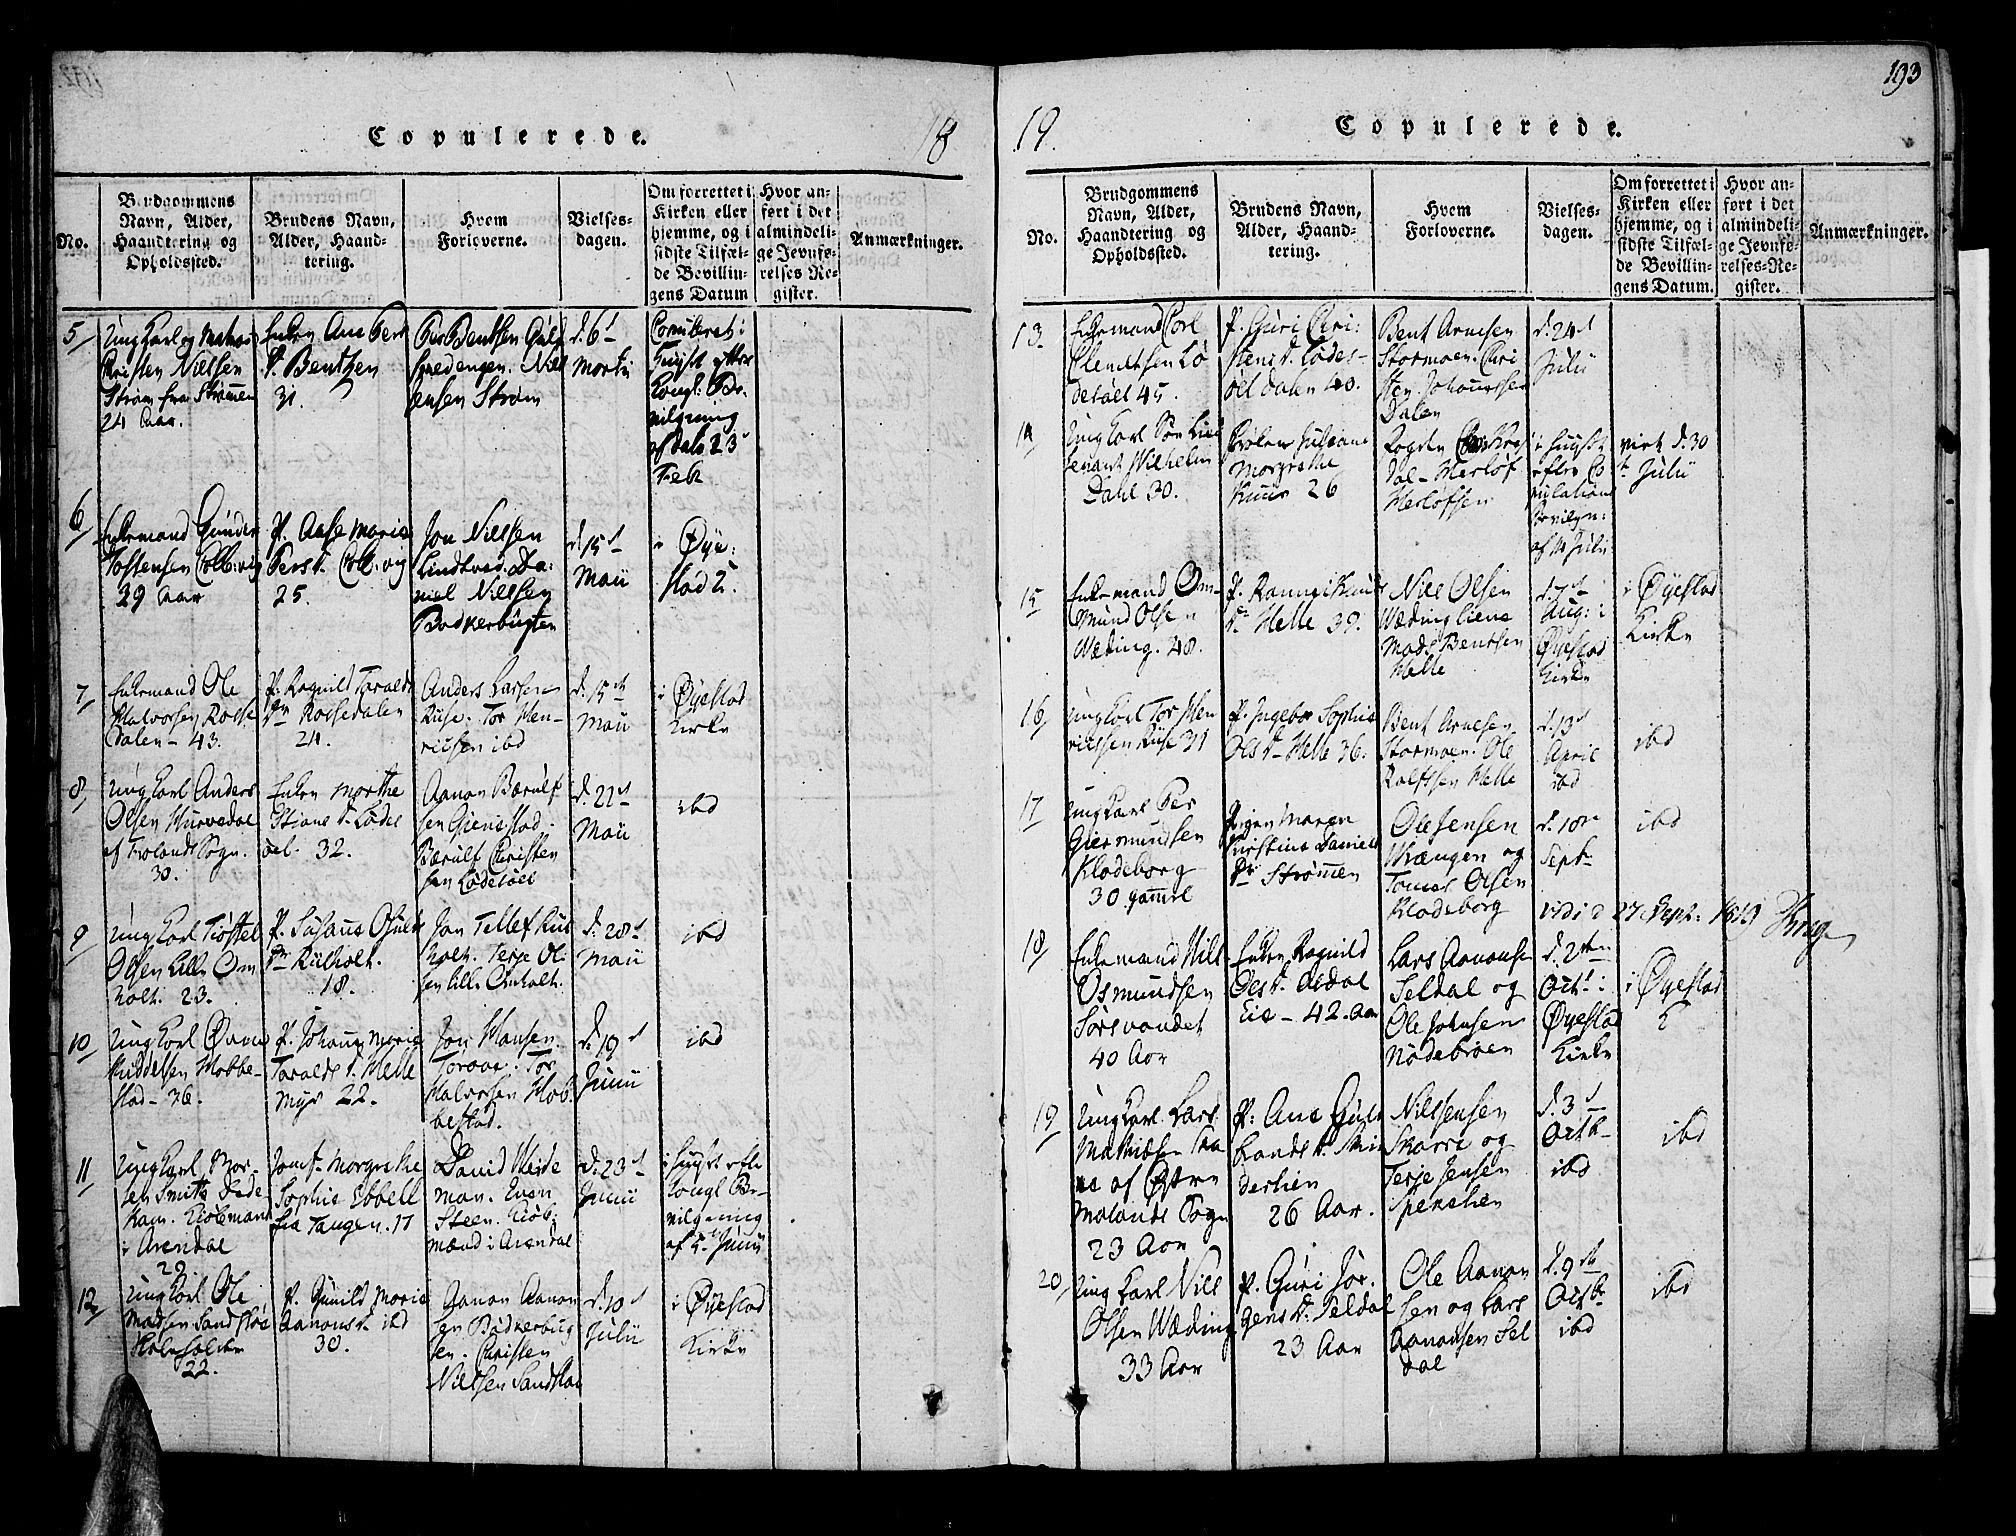 193
Copulerede.
18
No.
Brudgommens Navn, Alder, Haandtering og Opholdssted.
Brudens Navn, Alder, Haandtering.
Hvem Forloverne.
Vielsesdagen.
Om forrettet i Kirken eller hjemme, og i sidste Tilfælde Bevillingens Datum
Hvor anført i det almindelige Jevnførelses-Register.
Anmærkninger.
5
Ungkarl og
Christen Nielsen
Strøm fra Strømmen
24 Aar.
Enken Ane Pers
d. Bentzen
31.
Per Bentsen
Niels
Jensen Strøm
d. 6t
Martii
Copuleret i
Huuset efter
Kongl: Be-
vilgning
af Dato 23
Feb
6
Enkemand Gunder
Tostensen Colb:vig
29 Aar
P. Aase Marie
Pers d. Colb:vig
25.
Jon Nielsen
Lindtved. Da-
niel Nielsen
Bødkerbugten
d. 15t
Maii
i Øye:
stad
7
Enkemand Ole
Halvorsen Rosse
dalen - 43.
P. Ragnild Taralds
Dr Rossedalen
24.
Anders Larsen
Ruse. Tor Hen-
richsen ibd
d. 15th
Maii
i Øyestad
Kirke
8
Ungkarl Anders
Olsen Hurvedal
af Frolands Sogn.
30.
Enken Marthe
Stians d. Lødes
øel. 32.
Aanon Bærulf
sen Gienestad.
Bærulf Christen
sen Lødesøel
d. 22t
Maii
ibd
9
Ungkarl Tiøstel
Olsen Lille Om
holt. 23.
P. Susanne Osulds
Dr Rülholt.
18.
Jon Tellefsen
holt. Terje Ol
sen Lille Omholt.
d. 28t
Maii
ibd
10
Ungkarl Øven
Kiddelsen Hobbe-
stad - 36.
P. Johanne Marie
Taralds d. Helle
myr 22.
Jon Hansen
Toraae. Tor
Halvorsen Hob
bestad.
d. 19t
Junii
ibd
11
Ungkarl Mor-
ten Smith Dede
kam. Kiøbmand
i Arendal
29.
Jomf. Margrethe
Sophie Ebbell
fra Tangen. 17
David Weide
man. Even
Steen. Kiøb
mænd i Arendal
d. 23t
Junii
i Huuset efter
Kongl Be-
vilgning
af 4. Junii
12
Ungkarl Ole
Madsen Sandstøe
22.
P. Gunild Marie
Aanons d. ibd
30.
Aanon Aanon
sen Bødkerbug
ten. Christen
Nielsen Sandstøe
d. 10t
Julii
i Øyestad
Kirke
19.
Copulerede.
No.
Brudgommens Navn, Alder, Haandtering og Opholdssted.
Brudens Navn, Alder, Haandtering.
Hvem Forloverne.
Vielsesdagen.
Om forrettet i Kirken eller hjemme, og i sidste Tilfælde Bevillingens Datum.
Hvor anført i det almindelige Jevnførelses-Register.
Anmærkninger.
13
Enkemand Carl
Clemetsen Lø
desøel 45.
P. Guri Chri:
stens d. Lødes-
øel dalen 40.
Bent Arnesen
Stormoen. Chri
sten Johannssen
Dalen
d. 24t
Julii
14
Ungkarl Søe Lieu
tenant Wilhelm
Dahl 30.
Frøken Juliane
Margrethe
Kruus 26
Herløf
Herløfsen
i Huuset
efter Co
pulations
bevilgn:
af 14 Julii
viet d. 30
t Julii
15
Enkemand Om-
mund Olsen
Wæding. 48.
P. Ranni Knuds
Dr Helle 39.
Niels Olsen
Wæding Liene
Mads Bentsen
Helle
d. 7t
Aug: i
Øyestad
Kirke
i Øyestad
Kirke
16
Ungkarl Tor Hen
richsen Ruse 31
P. Ingebor Sophie
Ols d. Helle 36.
Bent Arnesen
Stormoen. Ole
Rolfsen Helle
d. 13t
April
ibd
ibd
17
Ungkarl Per
Giermundsen
Klodeborg
30 gammel
Pigen Maren
Kirstine Daniels
Dr Strømmen
Ole Jensen
Wrængen og
Tomas Olsen
Klodeborg
d. 10n
Sept-
ibd
vidi d 27 Sept: 1819 Krog
18
Enkemand Nils
Osmundsen
Sørsvandet
40 Aar
Enken Ragnild
Oles d. Aldal
Eie - 42 Aar
Lars Aanonse
Seldal og
Ole Johnsen
Nødebroen
d. 2den
Octb: i
Øyestad
Kirke
i Øyestad
K
19
Ungkarl Lars
Mathisen
af Østre
Molands Sogn
23 Aar
P: Ane Gun
26 Aar.
Nils Jensen
Skarre og
Terje Jensen
d. 3t
Octb-
ibd
ibd
20
Ungkarl Nils
Olsen Wæding
33 Aar
P. Guri Jør
gens d. Seldal
23 Aar
Ole Aanon
sen og Lars
Aanonsen Sel
dal
d. 9th
Octbr
ibd
ibd